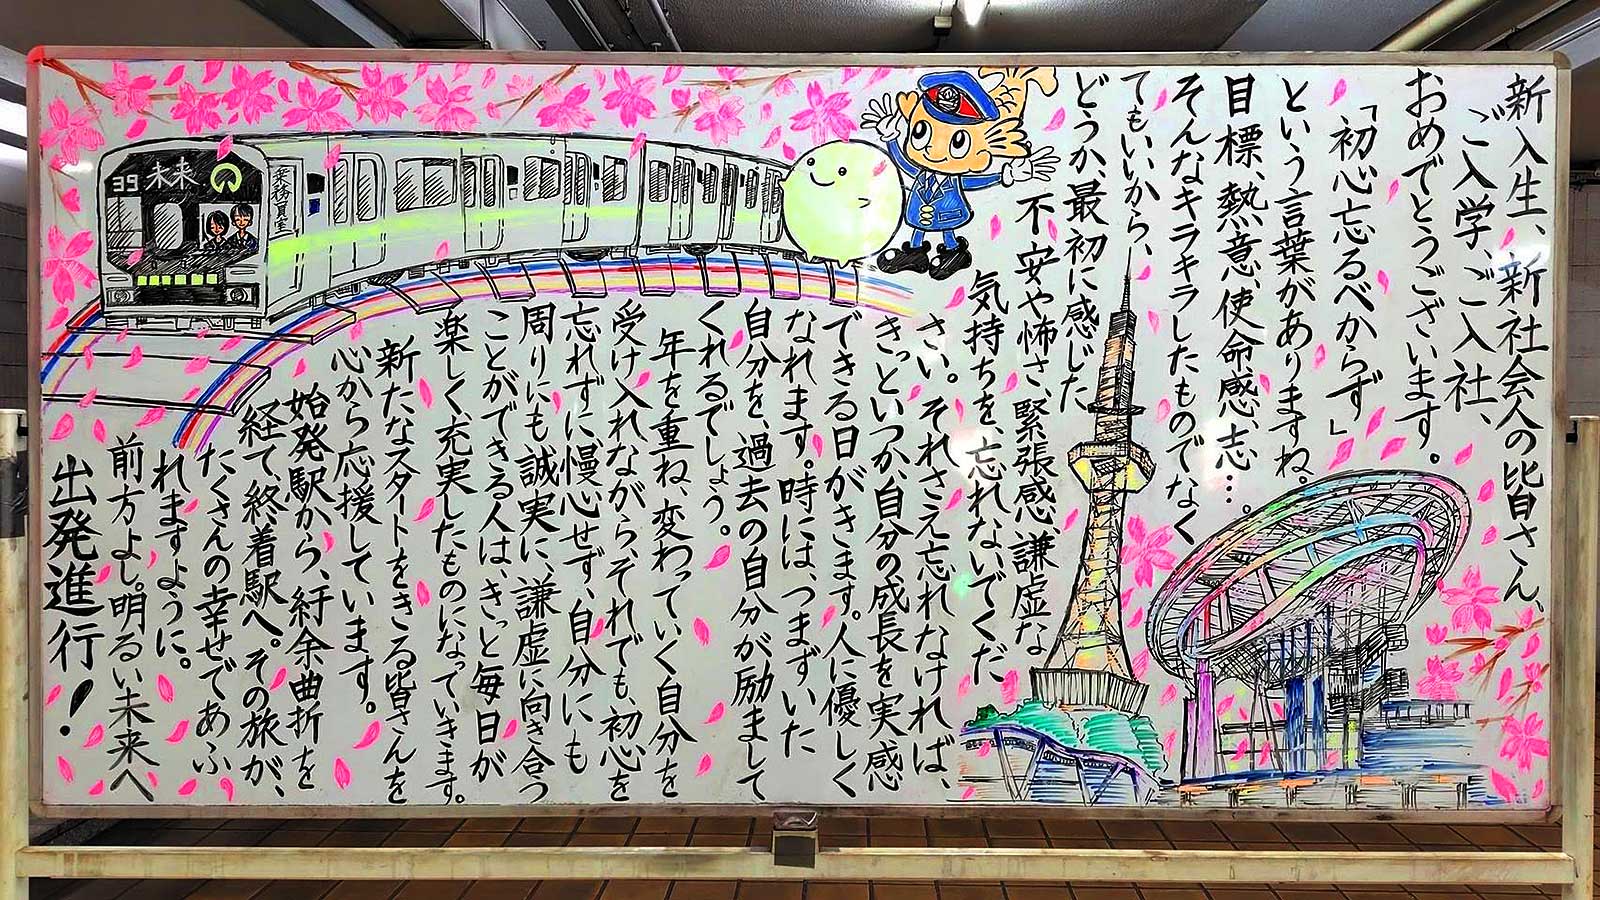 新入生、新社会人の皆さん、
ご入学、ご入社、
おめでとうございます。
「初心忘るべからず」
という言葉がありますね。
目標、熱意、使命感、志…。
そんなキラキラしたものでなく
てもいいから、
どうか、最初に感じた
不安や怖さ、緊張感、謙虚な
気持ちを、忘れないでくだ
さい。それさえ忘れなければ、
きっといつか、自分の成長を実感
できる日がきます。人に優しく
なれます。時には、つまずいた
自分を、過去の自分が励まして
くれるでしょう。
年を重ね、変わっていく自分を
受け入れながら、それでも初心を
忘れずに慢心せず、自分にも
周りにも誠実に、謙虚に向き合う
ことができる人は、きっと毎日が
楽しく、充実したものになっていきます。
新たなスタートをきる皆さんを
心から応援しています。
始発駅から、紆余曲折を
経て、終着駅へ。その旅が、
たくさんの幸せであふ
れますように。
前方よし。明るい未来へ
出発進行!
39 未来
乗務員室